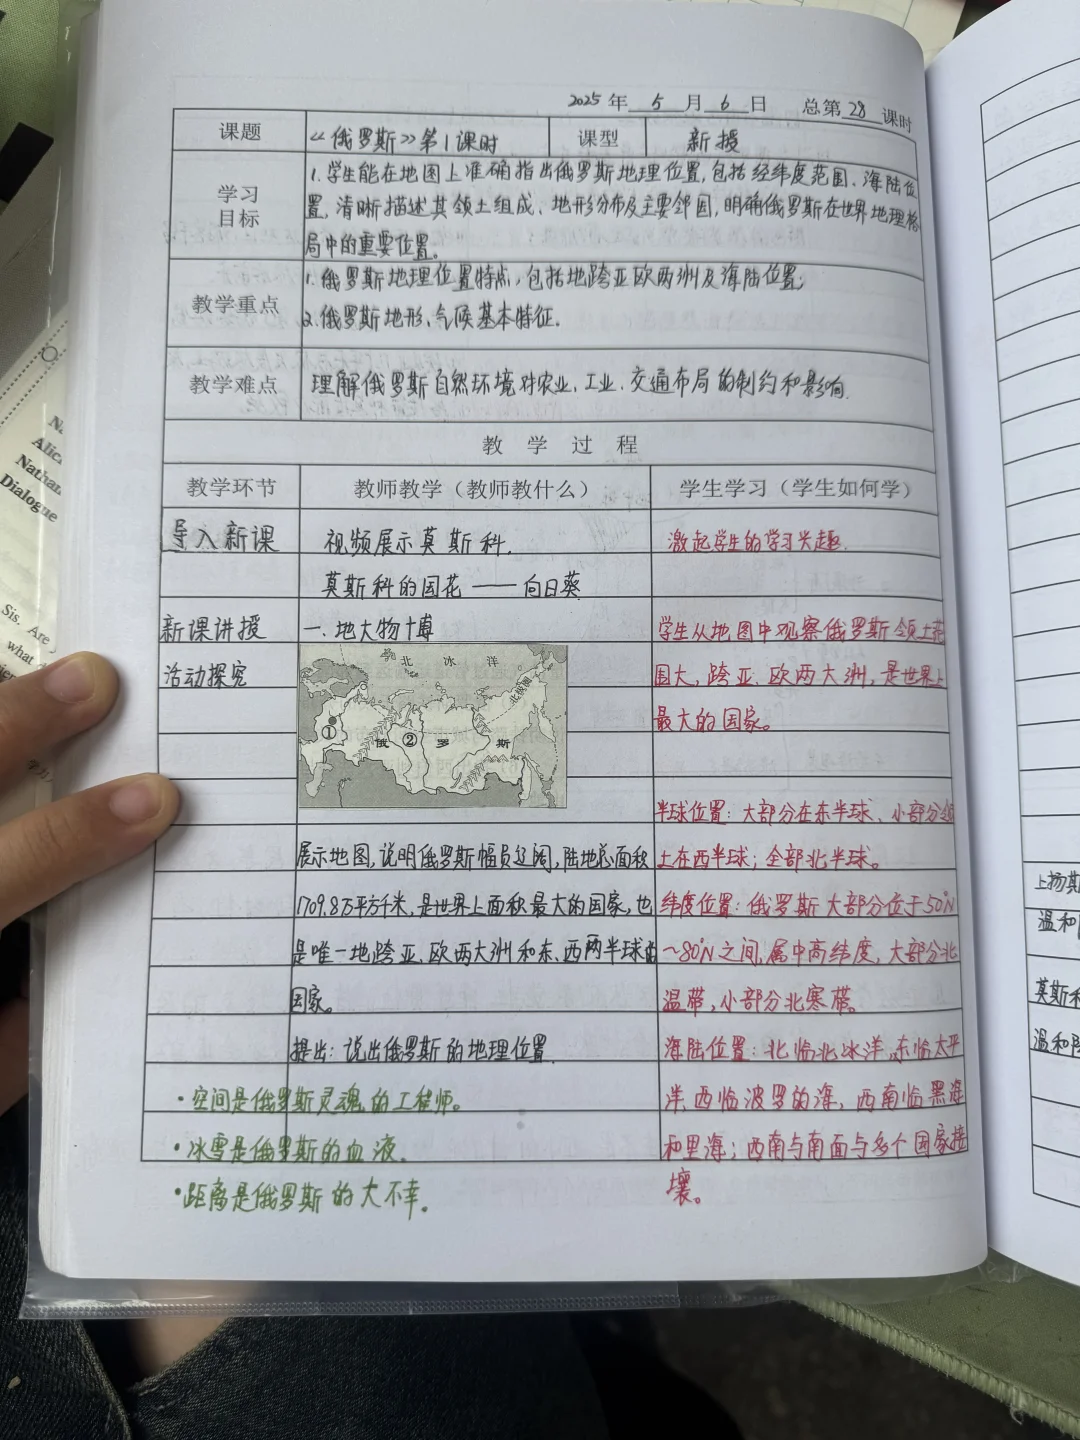 2025 年 5 月 6 日 总第 28 课时
课题 《俄罗斯》第1课时 课型 新授
学习目标
1.学生能在地图上准确指出俄罗斯地理位置,包括经纬度范围、海陆位
置,清晰描述其领土组成、地形分布及主要邻国,明确俄罗斯在世界地理格
局中的重要位置。
教学重点
1.俄罗斯地理位置特点,包括地跨亚欧两洲及海陆位置;
2.俄罗斯地形、气候基本特征.
教学难点 理解俄罗斯自然环境对农业、工业、交通布局的制约和影响.
教 学 过 程
教学环节 教师教学(教师教什么) 学生学习(学生如何学)
导入新课 视频展示莫斯科. 激起学生的学习兴趣.
莫斯科的国花 —— 向日葵
新课讲授 一.地大物博 学生从地图中观察俄罗斯领土范
活动探究 围大,跨亚、欧两大洲,是世界上
最大的国家。
北 冰 洋
① 俄 ② 罗 斯
半球位置:大部分在东半球、小部分领
展示地图,说明俄罗斯幅员辽阔,陆地总面积 土在西半球;全部北半球。
1709.8万平方千米,是世界上面积最大的国家,也 纬度位置:俄罗斯大部分位于50°N
是唯一地跨亚、欧两大洲和东、西两半球的 ~80°N之间,属中高纬度,大部分北
国家。 温带,小部分北寒带。
提出:说出俄罗斯的地理位置. 海陆位置:北临北冰洋,东临太平
·空间是俄罗斯灵魂的工程师。 洋,西临波罗的海,西南临黑海
·冰雪是俄罗斯的血液. 和里海;西南与南面与多个国家接
·距离是俄罗斯的大不幸。 壤。
Alic
Nathan
Dialogue
Sis. Are
what
上扬斯
温和
莫斯科
温和